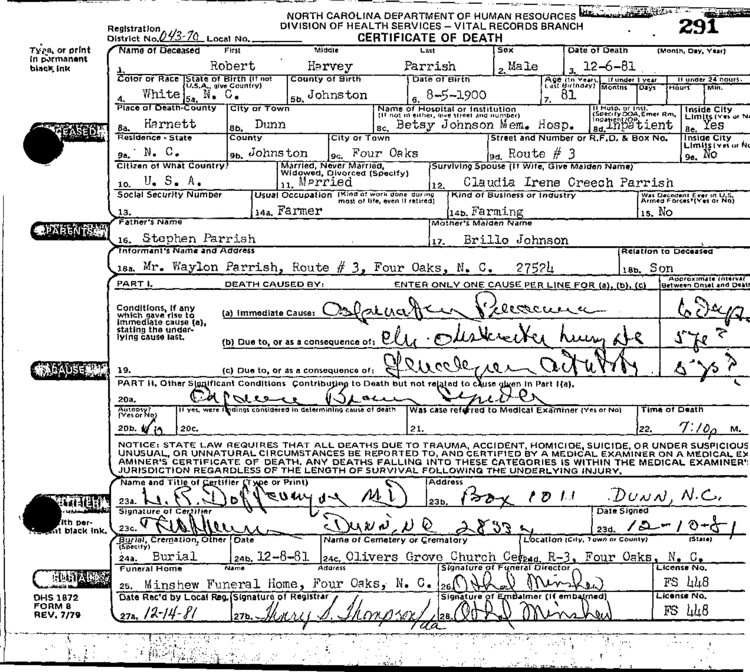 NORTH CAROLINA DEPARTMENT OF HUMAN RESOURCES
DIVISION OF HEALTH SERVICES – VITAL RECORDS BRANCH
CERTIFICATE OF DEATH
291
Registration
District No. 043-70 Local No.
Type, or print
in permanent
black ink
Name of Deceased First Middle Last Sex Date of Death (Month, Day, Year)
1. Robert Harvey Parrish 2. Male 3. 12-6-81
Color or Race State of Birth (If not U.S.A., give Country) County of Birth Date of Birth Age (In Years, Last Birthday) If under 1 year Months Days If under 24 hours. Hours Min.
4. White 5a. N. C. 5b. Johnston 6. 8-5-1900 7. 81
Place of Death-County City or Town Name of Hospital or Institution (If not in either, give street and number) If Hosp. or Inst. (Specify DOA, Emer Rm, Inpatient/OP) Inside City Limits (Yes or No)
8a. Harnett 8b. Dunn 8c. Betsy Johnson Mem. Hosp. 8d. Inpatient 8e. Yes
Residence - State County City or Town Street and Number or R.F.D. & Box No. Inside City Limits (Yes or No)
9a. N. C. 9b. Johnston 9c. Four Oaks 9d. Route # 3 9e. No
Citizen of What Country? Married, Never Married, Widowed, Divorced (Specify) Surviving Spouse (If Wife, Give Maiden Name)
10. U. S. A. 11. Married 12. Claudia Irene Creech Parrish
Social Security Number Usual Occupation (Kind of work done during most of life, even if retired) Kind of Business or Industry Was Decedent Ever in U.S. Armed Forces? (Yes or No)
13. 14a. Farmer 14b. Farming 15. No
PARENTS
Father's Name Mother's Maiden Name
16. Stephen Parrish 17. Brillo Johnson
Informant's Name and Address Relation to Deceased
18a. Mr. Waylon Parrish, Route # 3, Four Oaks, N. C. 27524 18b. Son
PART I. DEATH CAUSED BY: ENTER ONLY ONE CAUSE PER LINE FOR (a), (b), (c) Approximate Interval Between Onset and Death
Conditions, if any which gave rise to immediate cause (a), stating the underlying cause last.
(a) Immediate Cause: 6 days
(b) Due to, or as a consequence of:
CAUSE
19. (c) Due to, or as a consequence of:
PART II. Other Significant Conditions Contributing to Death but not related to cause given in Part I(a).
20a.
Autopsy? (Yes or No) If yes, were findings considered in determining cause of death Was case referred to Medical Examiner (Yes or No) Time of Death
20b. No 20c. 21. 22. 7:10p M.
NOTICE: STATE LAW REQUIRES THAT ALL DEATHS DUE TO TRAUMA, ACCIDENT, HOMICIDE, SUICIDE, OR UNDER SUSPICIOUS
UNUSUAL, OR UNNATURAL CIRCUMSTANCES BE REPORTED TO, AND CERTIFIED BY A MEDICAL EXAMINER ON A MEDICAL EX
AMINER'S CERTIFICATE OF DEATH. ANY DEATHS FALLING INTO THESE CATEGORIES IS WITHIN THE MEDICAL EXAMINER'S
JURISDICTION REGARDLESS OF THE LENGTH OF SURVIVAL FOLLOWING THE UNDERLYING INJURY.
Name and Title of Certifier (Type or Print) Address
23a. MD 23b. Box 1011 DUNN, N.C.
Signature of Certifier Date Signed
23c. DUNN, NC 23d. 12-10-81
black ink.
Burial, Cremation, Other (Specify) Date Name of Cemetery or Crematory Location (City, Town or County) (State)
24a. Burial 24b. 12-8-81 24c. Olivers Grove Church Cem 24d. R-3, Four Oaks, N. C.
Funeral Home Name Address Signature of Funeral Director License No.
25. Minshew Funeral Home, Four Oaks, N. C. 26. Othel Minshew FS 448
DHS 1872
FORM 8
REV. 7/79
Date Rec'd by Local Reg. Signature of Registrar Signature of Embalmer (If embalmed) License No.
27a. 12-14-81 27b. Henry S. Thompson/da 28. Othel Minshew FS 448